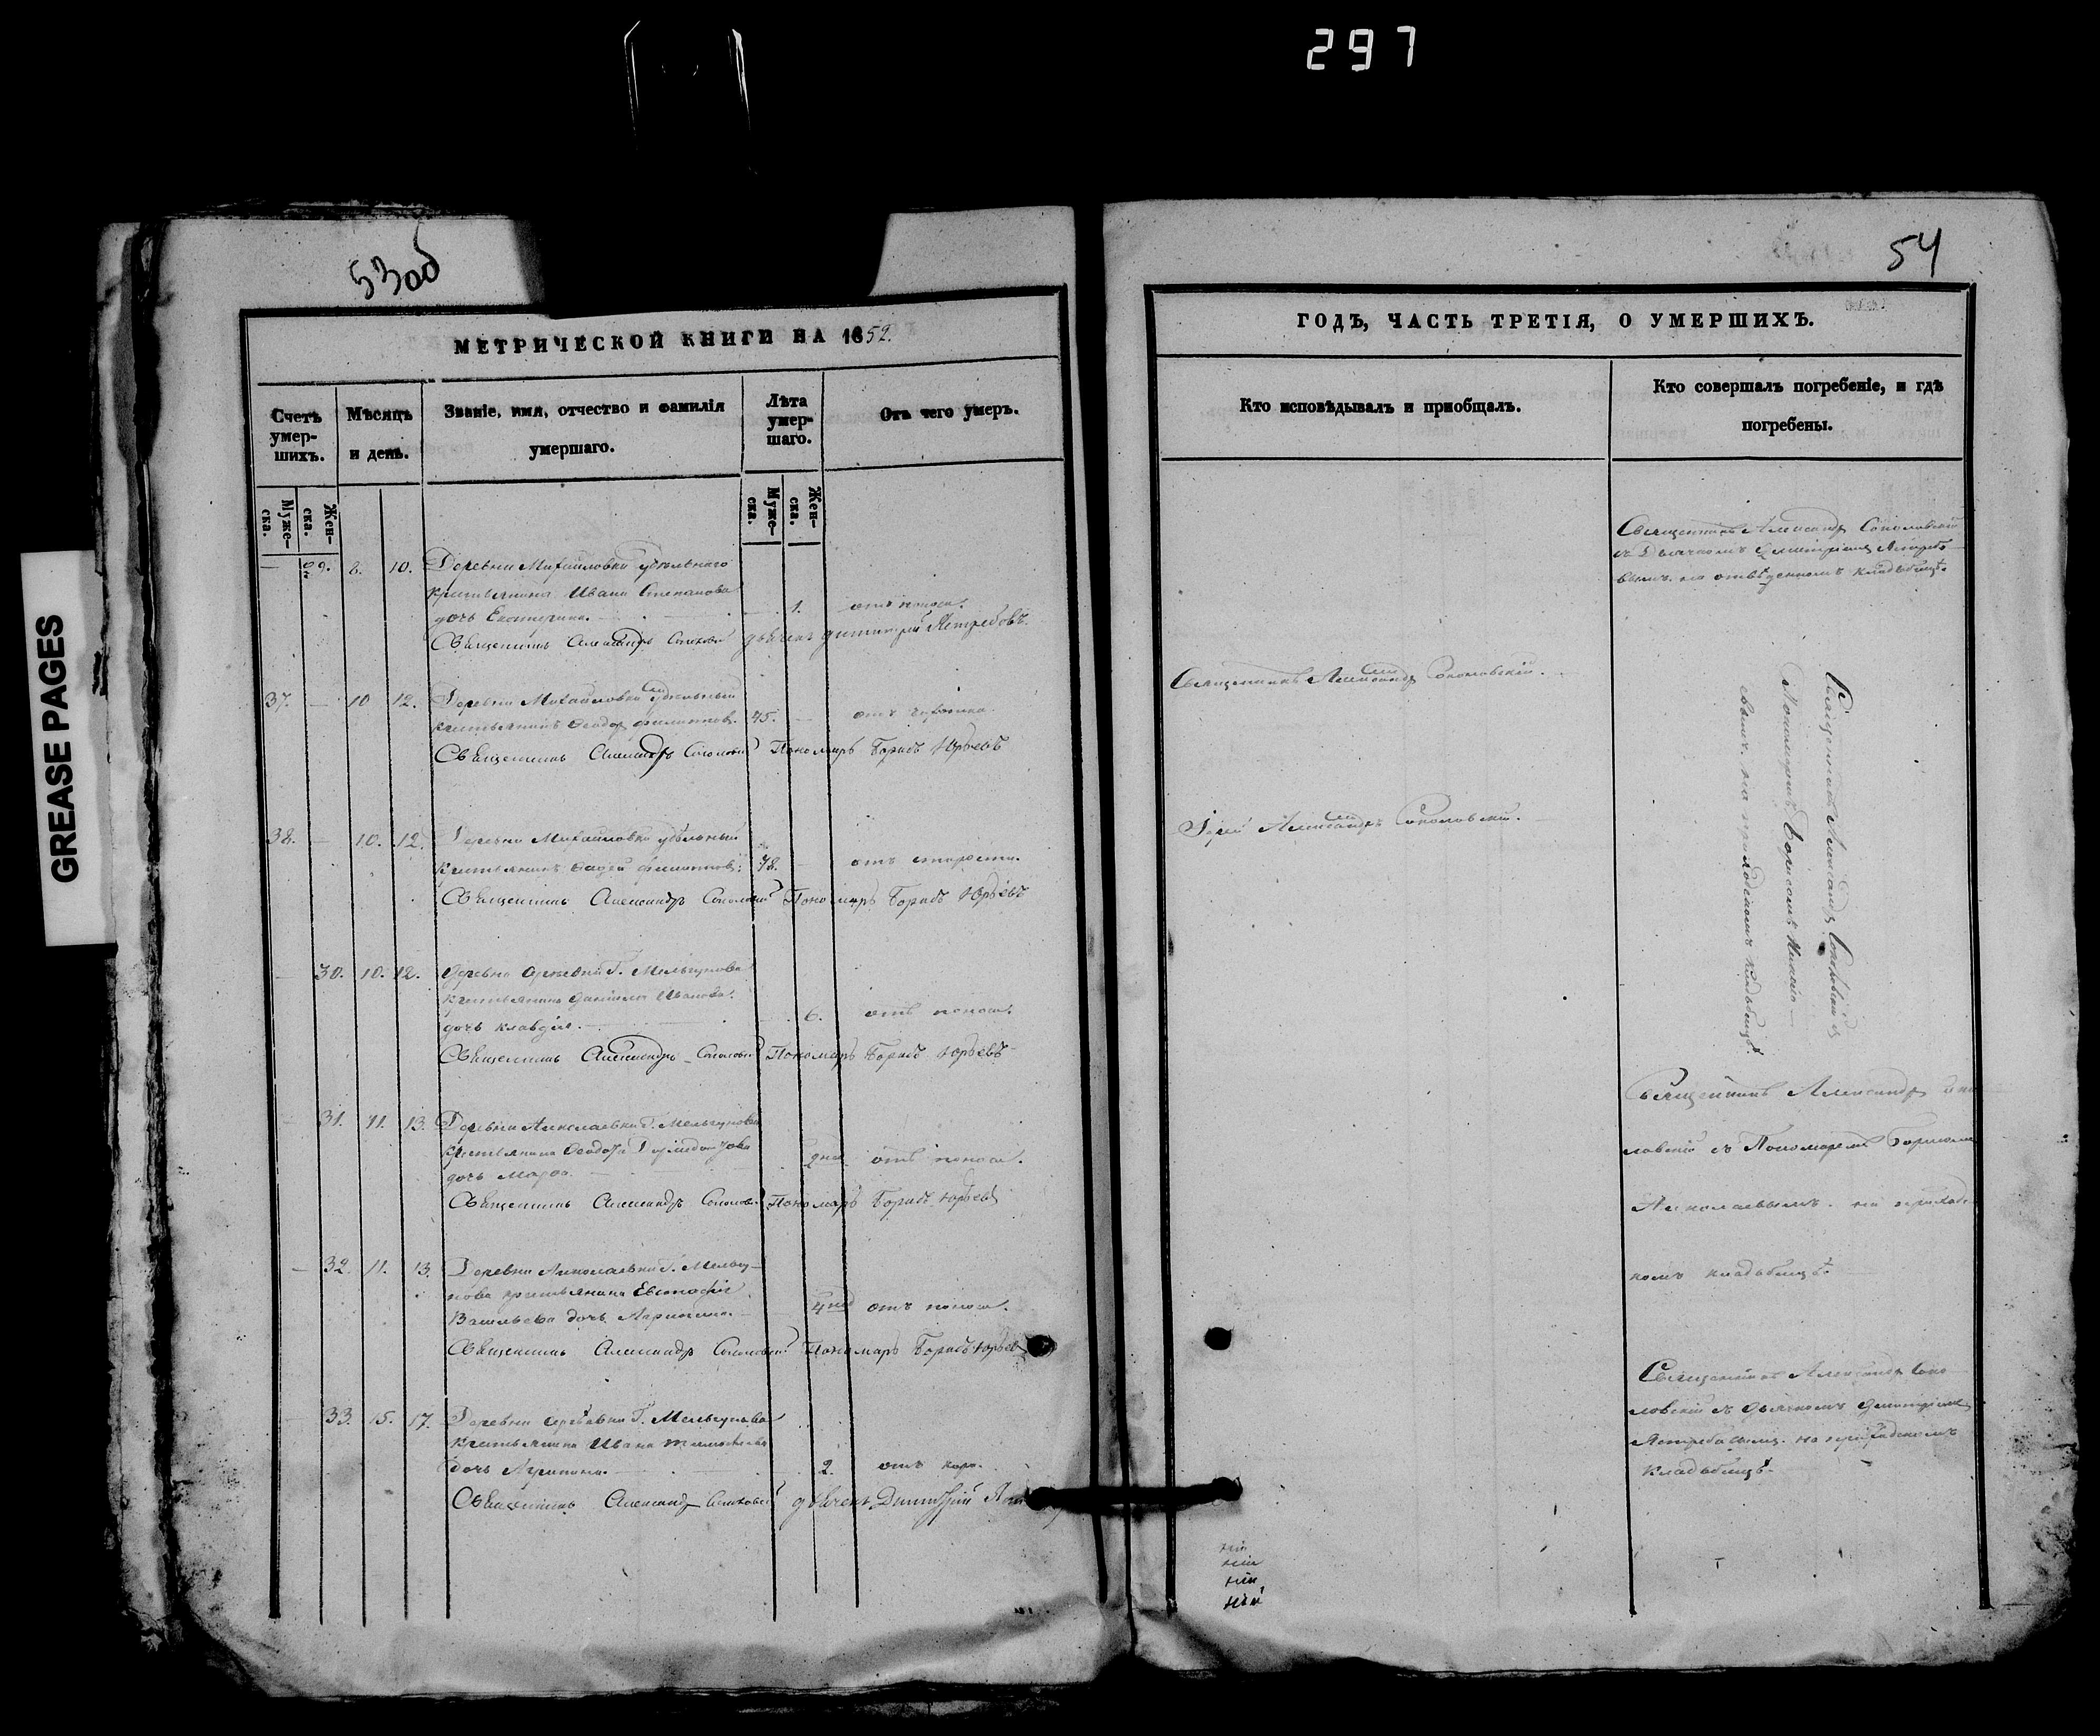 297
GREASE PAGES
53об
МЕТРИЧЕСКОЙ КНИГИ НА 1852.
Счетъ умер-шихъ.
Муже-ска.
Жен-ска.
Мѣсяцъ и день.
Званіе, имя, отчество и фамилія умершаго.
Лѣта умер-шаго.
Муже-ска.
Жен-ска.
Отъ чего умеръ.
— 29. 8. 10. Деревни Михайловки удѣльнаго
крестьянина Ивана Степанова
дочь Екатерина. — 1. отъ поноса.
Священникъ Александръ Соколовскій дьячекъ Димитрій Ястребовъ.
37. — 10 12. Деревни Михайловки удѣльный
крестьянинъ Ѳеодоръ Филиппов. 45. — отъ
Священникъ Александръ Соколовскій Пономарь Борисъ Юрьевъ
38. — 10. 12. Деревни Михайловки удѣльный
крестьянинъ Филиппов. 78. — отъ старости.
Священникъ Александръ Соколовскій Пономарь Борисъ Юрьевъ
— 30. 10. 12. Деревни Г. Мельгунова
крестьянина Даниила Иванова
дочь Клавдія. — 6. отъ поноса.
Священникъ Александръ Соколовскій Пономарь Борисъ Юрьевъ
— 31. 11. 13. Деревни Николаевки Г. Мельгунова
крестьянина Ѳеодора
дочь Марѳа. отъ поноса.
Священникъ Александръ Соколовскій Пономарь Борисъ Юрьевъ
— 32. 11. 13. Деревни Николаевки Г. Мельгу-
нова крестьянина
Васильева дочь 4 нед отъ поноса.
Священникъ Александръ Соколовскій Пономарь Борисъ Юрьевъ
— 33. 15. 17. Деревни Г. Мельгунова
крестьянина Ивана Тимоѳеева
дочь Агрипина. 2. отъ кори.
Священникъ Александръ Соколовскій дьячекъ Димитрій
54
ГОДЪ, ЧАСТЬ ТРЕТІЯ, О УМЕРШИХЪ.
Кто исповѣдывалъ и пріобщалъ.
Кто совершалъ погребеніе, и гдѣ погребены.
Священникъ Александръ Соколовскій
съ Дьячкомъ Димитріемъ Ястребо-
вымъ на отведенномъ кладбищѣ.
Священникъ Александръ Соколовскій.
Іерей Александръ Соколовскій.
Священникъ Александръ Соколовскій съ
Пономаремъ Борисомъ Никола-
евымъ. на приходскомъ кладбищѣ.
Священникъ Александръ Соко-
ловскій съ Пономаремъ Борисомъ
Николаевымъ. на приходс-
комъ кладбищѣ.
Священникъ Александръ Соко-
ловскій съ Дьячкомъ Димитріемъ
Ястребовымъ. на приходскомъ
кладбищѣ.